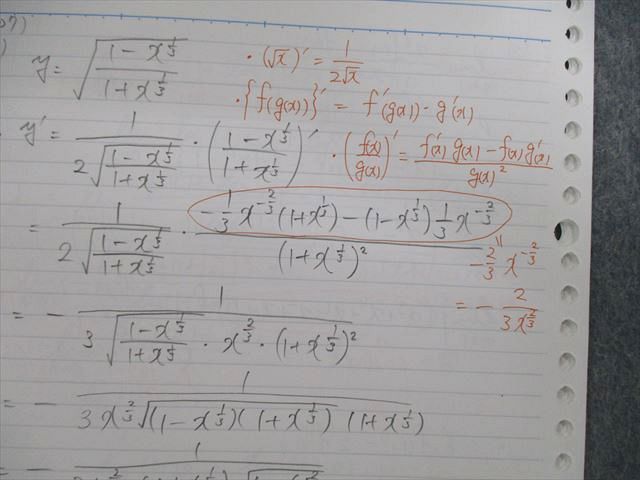 07)
y = √((1 - x^{1/3})/(1 + x^{1/3})) ・(√x)' = 1/(2√x)
・{f(g(x))}' = f'(g(x))・g'(x)
y' = 1/(2√((1 - x^{1/3})/(1 + x^{1/3}))) ・ ((1 - x^{1/3})/(1 + x^{1/3}))' ・(f(x)/g(x))' = (f'(x) g(x) - f(x) g'(x))/g(x)^2
= 1/(2√((1 - x^{1/3})/(1 + x^{1/3}))) ・ (-1/3 x^{-2/3} (1 + x^{1/3}) - (1 - x^{1/3}) 1/3 x^{-2/3})/(1 + x^{1/3})^2
= -2/3 x^{-2/3}
= - 2/(3x^{2/3})
= - 1/(3√((1 - x^{1/3})/(1 + x^{1/3})) ・ x^{2/3} ・ (1 + x^{1/3})^2)
= - 1/(3x^{2/3} √((1 - x^{1/3})(1 + x^{1/3})) (1 + x^{1/3}))
= - 1